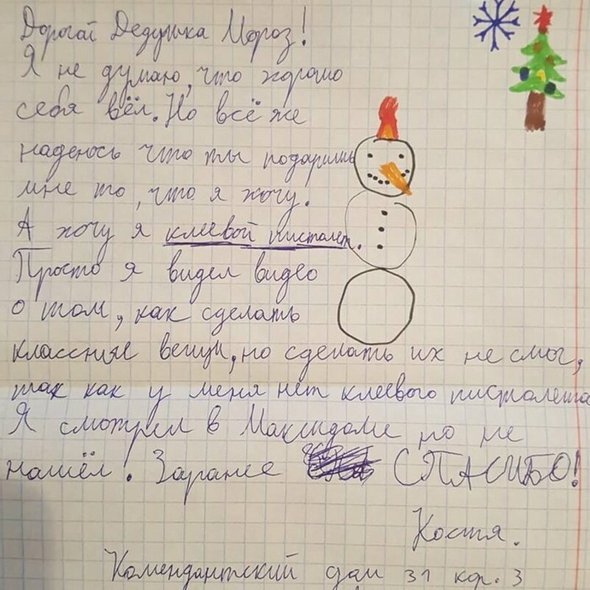 Дорогай Дедушка Мороз!
Я не думаю, что хорошо
себя вёл. Но всё же
надеюсь что ты подаришь
мне то, что я хочу!
А хочу я клеевой пистолет.
Просто я видел видео
о том, как сделать
классные вещи, но сделать их не смог,
так как у меня нет клеевого пистолета
Я смотрел в Максидоме но не
нашёл! Заранее СПАСИБО!
Костя.
Комендантский дом 31 кор. 3